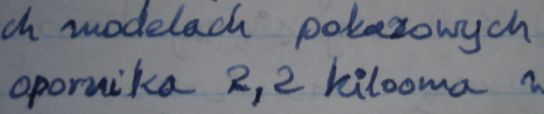 ch modelach pokazowych
opornika 2,2 kilooma